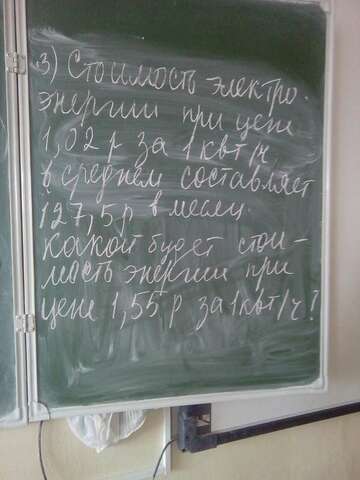 3) Стоимость электро-
энергии при цене
1,02 р за 1 квт/ч,
в среднем составляет
127,5р в месяц.
Какой будет стои-
мость энергии при
цене 1,55 р за 1квт/ч?